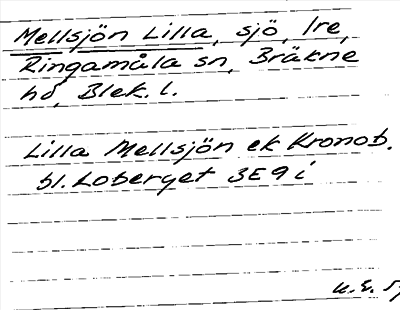 Mellsjön Lilla, sjö, Ire,
Ringamåla sn, Bräkne
hd, Blek. l.
Lilla Mellsjön ek Kronob.
bl. Loberget 3E9i